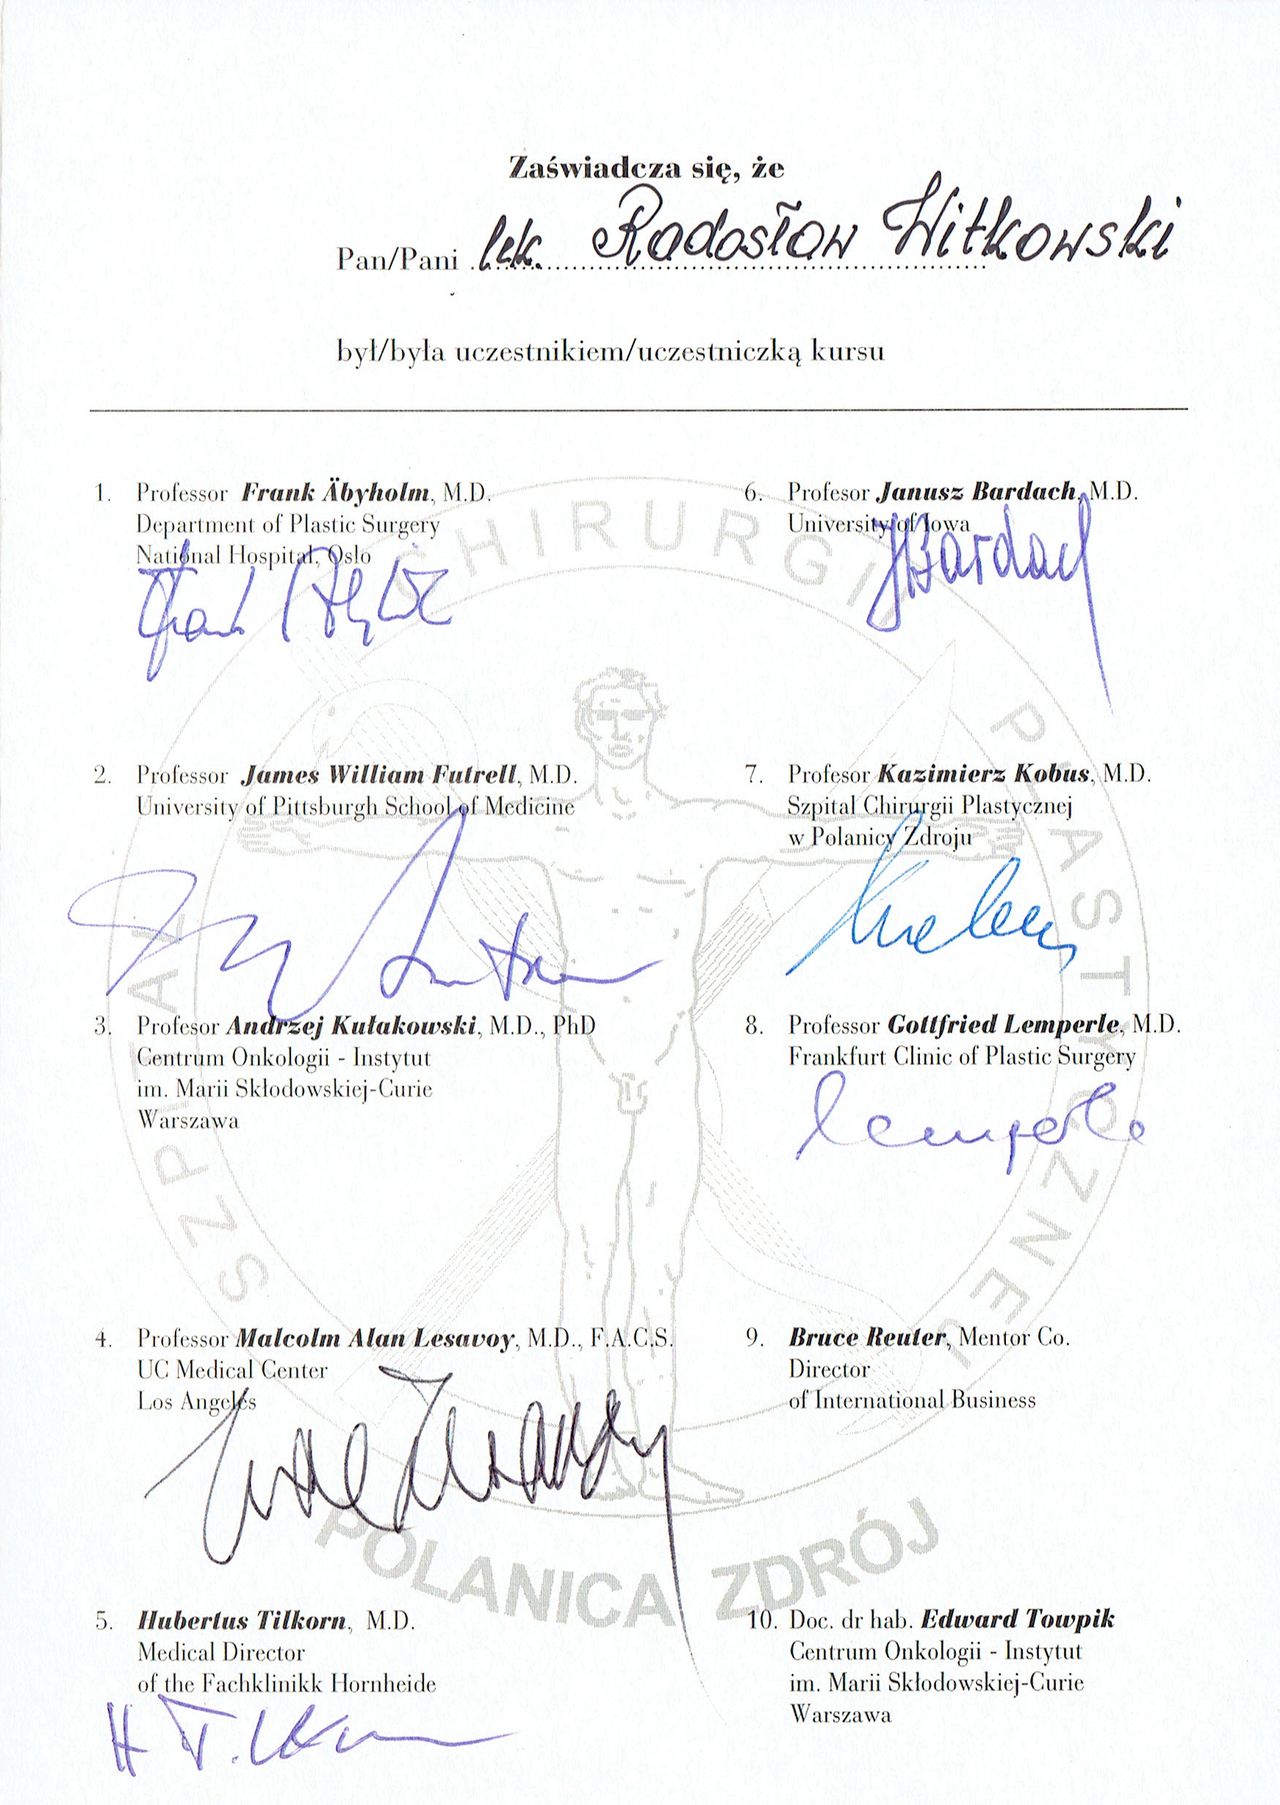 Zaświadcza się, że
Pan/Pani lek. Radosław Witkowski
był/była uczestnikiem/uczestniczką kursu
1. Professor Frank Äbyholm, M.D.
Department of Plastic Surgery
National Hospital, Oslo
2. Professor James William Futrell, M.D.
University of Pittsburgh School of Medicine
3. Profesor Andrzej Kułakowski, M.D., PhD
Centrum Onkologii - Instytut
im. Marii Skłodowskiej-Curie
Warszawa
4. Professor Malcolm Alan Lesavoy, M.D., F.A.C.S.
UC Medical Center
Los Angeles
5. Hubertus Tilkorn, M.D.
Medical Director
of the Fachklinikk Hornheide
H T.
6. Profesor Janusz Bardach, M.D.
University of Iowa
JBardach
7. Profesor Kazimierz Kobus, M.D.
Szpital Chirurgii Plastycznej
w Polanicy Zdroju
8. Professor Gottfried Lemperle, M.D.
Frankfurt Clinic of Plastic Surgery
Lemperle
9. Bruce Reuter, Mentor Co.
Director
of International Business
10. Doc. dr hab. Edward Towpik
Centrum Onkologii - Instytut
im. Marii Skłodowskiej-Curie
Warszawa
SZPITAL CHIRURGII PLASTYCZNEJ
POLANICA ZDRÓJ